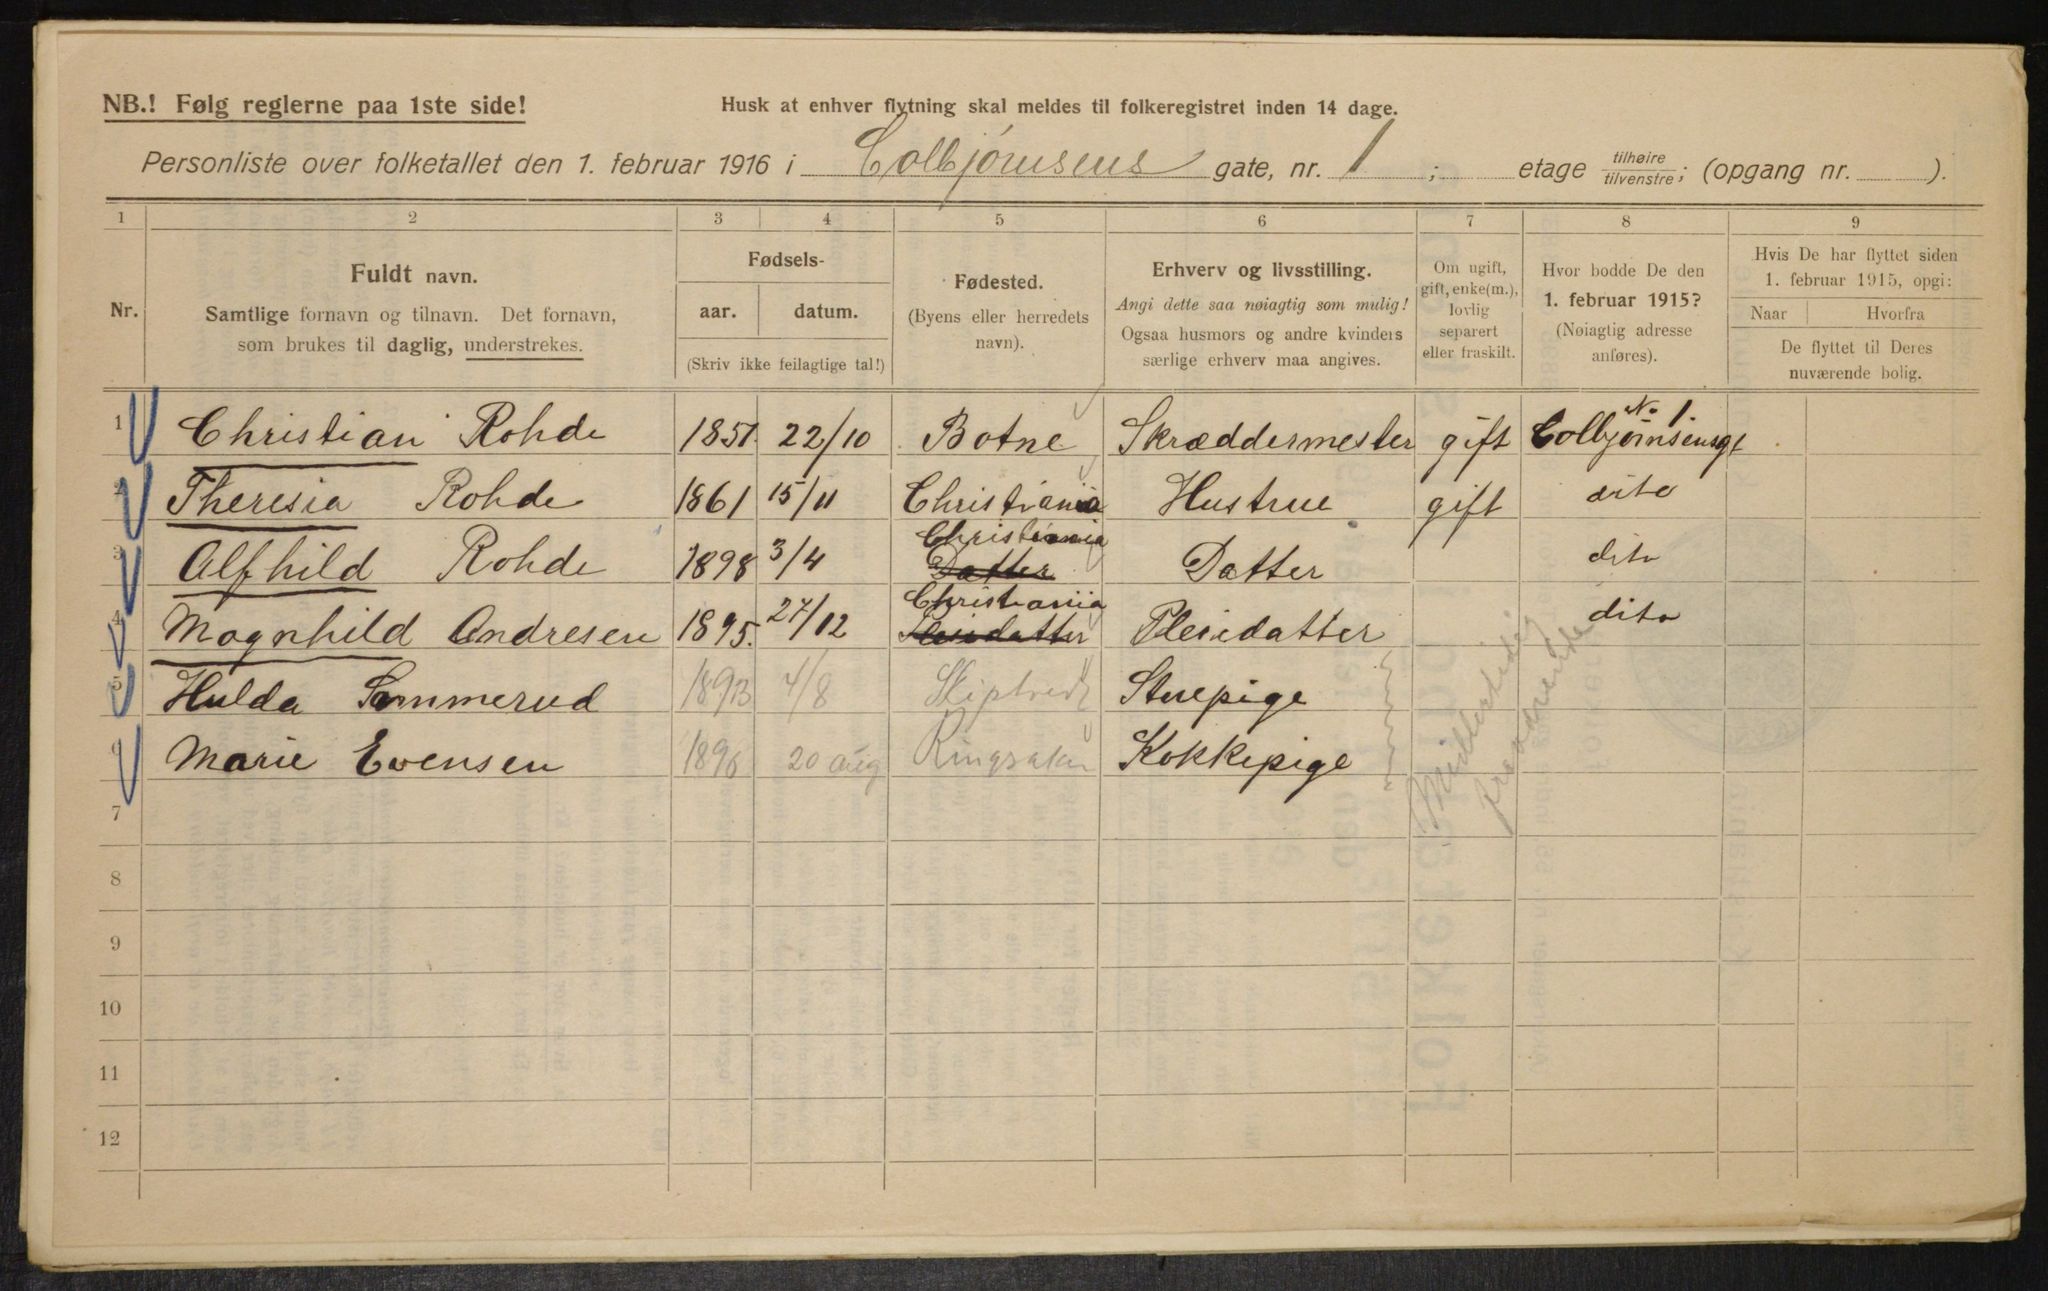 NB.! Følg reglerne paa 1ste side!
Husk at enhver flytning skal meldes til folkeregistret inden 14 dage.
Personliste over folketallet den 1. februar 1916 i Colbjørnsens gate, nr. 1 ; etage tilhøire tilvenstre; (opgang nr. ).
1 2 3 4 5 6 7 8 9
Nr.
Fuldt navn.
Samtlige fornavn og tilnavn. Det fornavn,
som brukes til daglig, understrekes.
Fødsels-
aar. datum.
(Skriv ikke feilagtige tal!)
Fødested.
(Byens eller herredets
navn).
Erhverv og livsstilling.
Angi dette saa nøiagtig som mulig!
Ogsaa husmors og andre kvinders
særlige erhverv maa angives.
Om ugift,
gift, enke(m.),
lovlig
separert
eller fraskilt.
Hvor bodde De den
1. februar 1915?
(Nøiagtig adresse
anføres).
Hvis De har flyttet siden
1. februar 1915, opgi:
Naar Hvorfra
De flyttet til Deres
nuværende bolig.
1 Christian Rohde 1851 22/10 Botne Skræddermester gift Colbjørnsensgt No 1.
2 Theresia Rohde 1861 15/11 Christiania Hustrue gift dito
3 Alfhild Rohde 1898 3/4 Christiania Datter Datter dito
4 Magnhild Andresen 1895. 27/12 Christiania Pleiedatter Pleiedatter dito
5 Hulda Sommerud 1893 4/8 Skiptvedt Stuepige
6 Marie Evensen 1896 20 aug Ringsaker Kokkepige
Midlertidig
fraværende
7
8
9
10
11
12